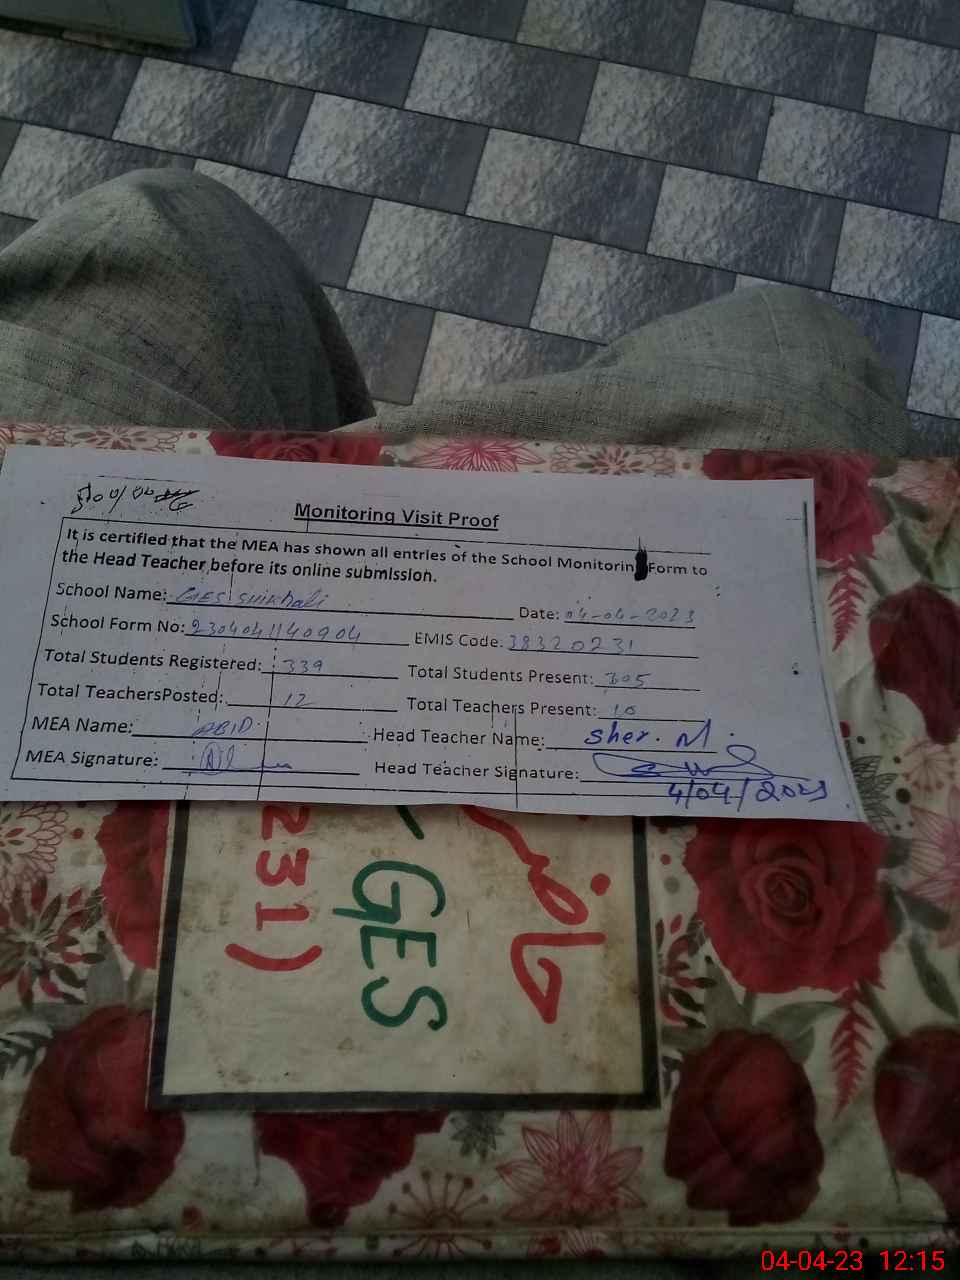 Monitoring Visit Proof
It is certified that the MEA has shown all entries of the School Monitorin Form to
the Head Teacher before its online submission.
School Name: GES Shikhali Date: 04-04-2023
School Form No: 2304041140904 EMIS Code: 38320231
Total Students Registered: 339 Total Students Present: 305
Total TeachersPosted: 12 Total Teachers Present: 10
MEA Name: ABID Head Teacher Name: sher. M.
MEA Signature: Head Teacher Signature:
4/04/2023
حاضری
GES
231)
04-04-23 12:15